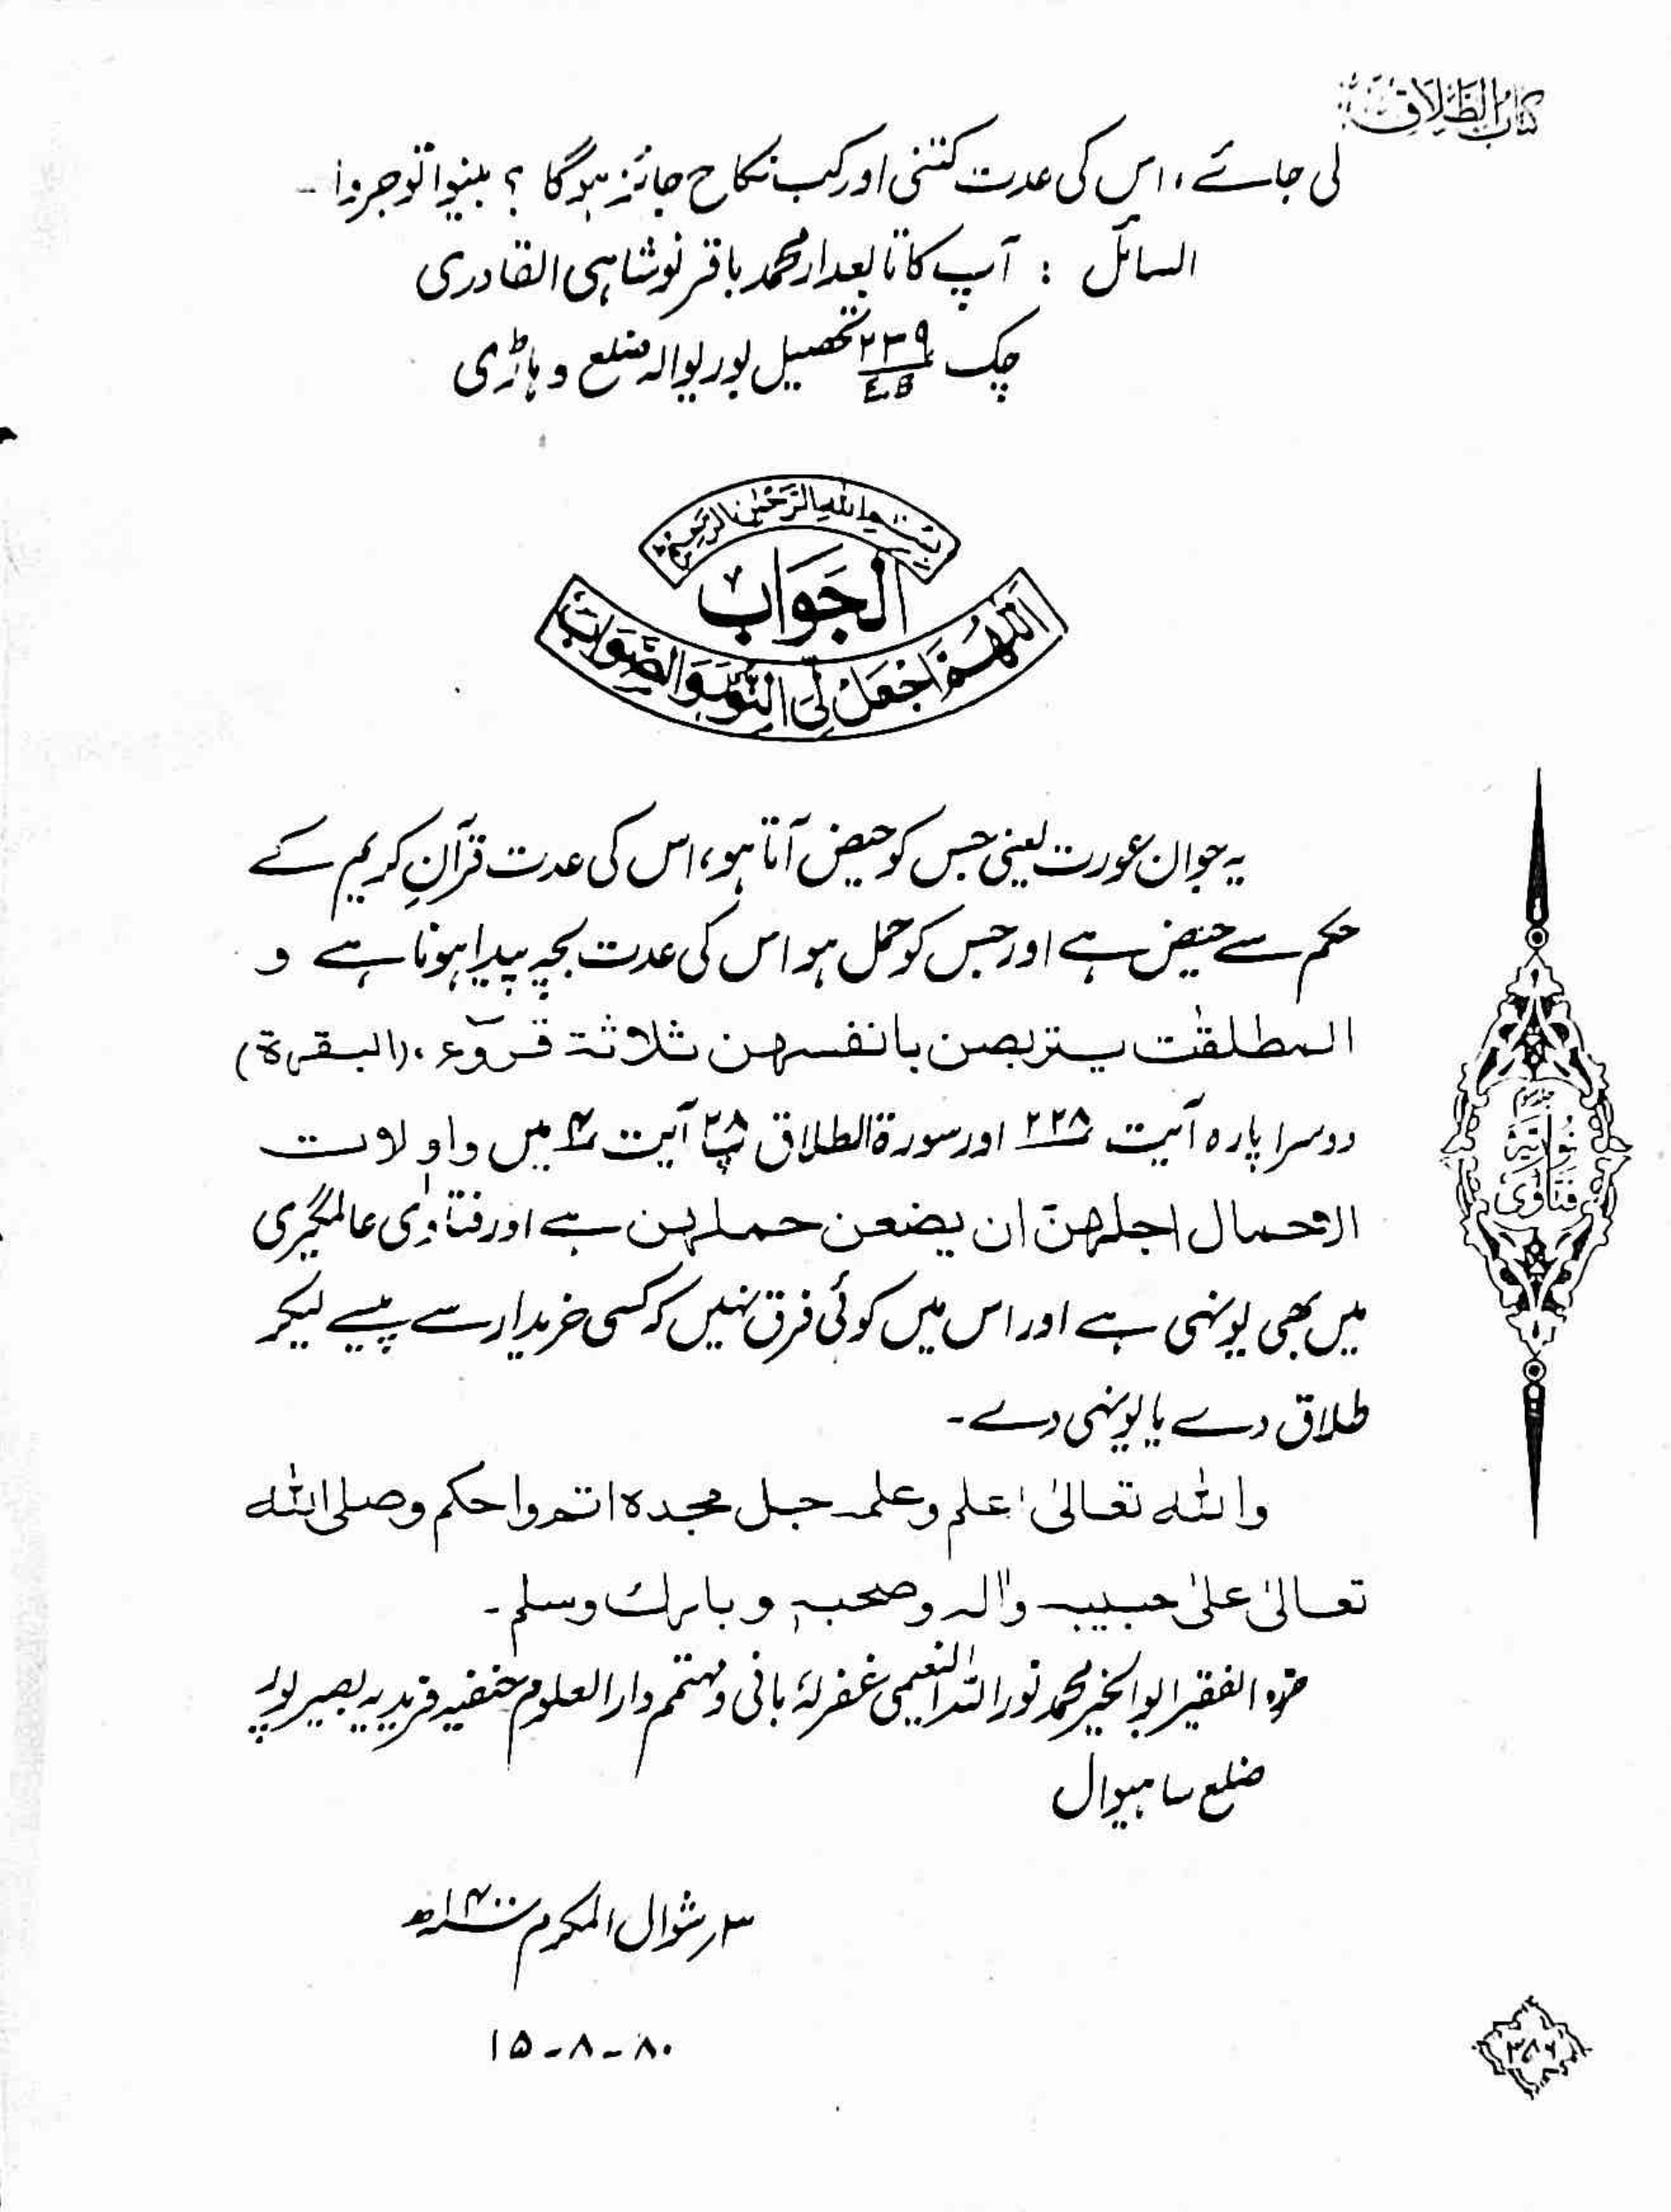 کتاب الطلاق
لی جائے، اس کی عدت کتنی اور کب نکاح جائز ہوگا ؟ بینوا توجروا۔
السائل : آپ کا تابعدار محمد باقر نوشاہی القادری
چک ۲۳۹/EB تحصیل بوریوالہ ضلع وہاڑی
بِسْمِ اللهِ الرَّحْمٰنِ الرَّحِيْمِ
الجَوَابُ
اَللّٰهُمَّ اجْعَلْ لِیَ النُّوْرَ وَالصَّوَابَ
یہ جوان عورت یعنی جس کو حیض آتا ہو، اس کی عدت قرآنِ کریم کے
حکم سے حیض ہے اور جس کو حمل ہو اس کی عدت بچہ پیدا ہونا ہے و
المطلقٰت یتربصن بانفسهن ثلاثة قروٓء، (البقرة)
دوسرا پارہ آیت ۲۲۸ اور سورۃ الطلاق پ۲۸ آیت ۴ میں واولات
الاحمال اجلهنّ ان یضعن حملهن ہے اور فتاوٰی عالمگیری
میں بھی یونہی ہے اور اس میں کوئی فرق نہیں کہ کسی خریدار سے پیسے لیکر
طلاق دے یا یونہی دے۔
واللّٰه تعالیٰ اعلم وعلمه جل مجده اتم واحکم وصلی اللّٰه
تعالیٰ علیٰ حبیبه واٰله وصحبه وبارك وسلم۔
حرّہ الفقیر ابوالخیر محمد نور اللہ النعیمی غفرلہٗ بانی و مہتمم دارالعلوم حنفیہ فریدیہ بصیرپور
ضلع ساہیوال
۳؍ شوال المکرم ۱۴۰۰ھ
۱۵-۸-۸۰
فتاوٰی نوریہ
۳۸۶